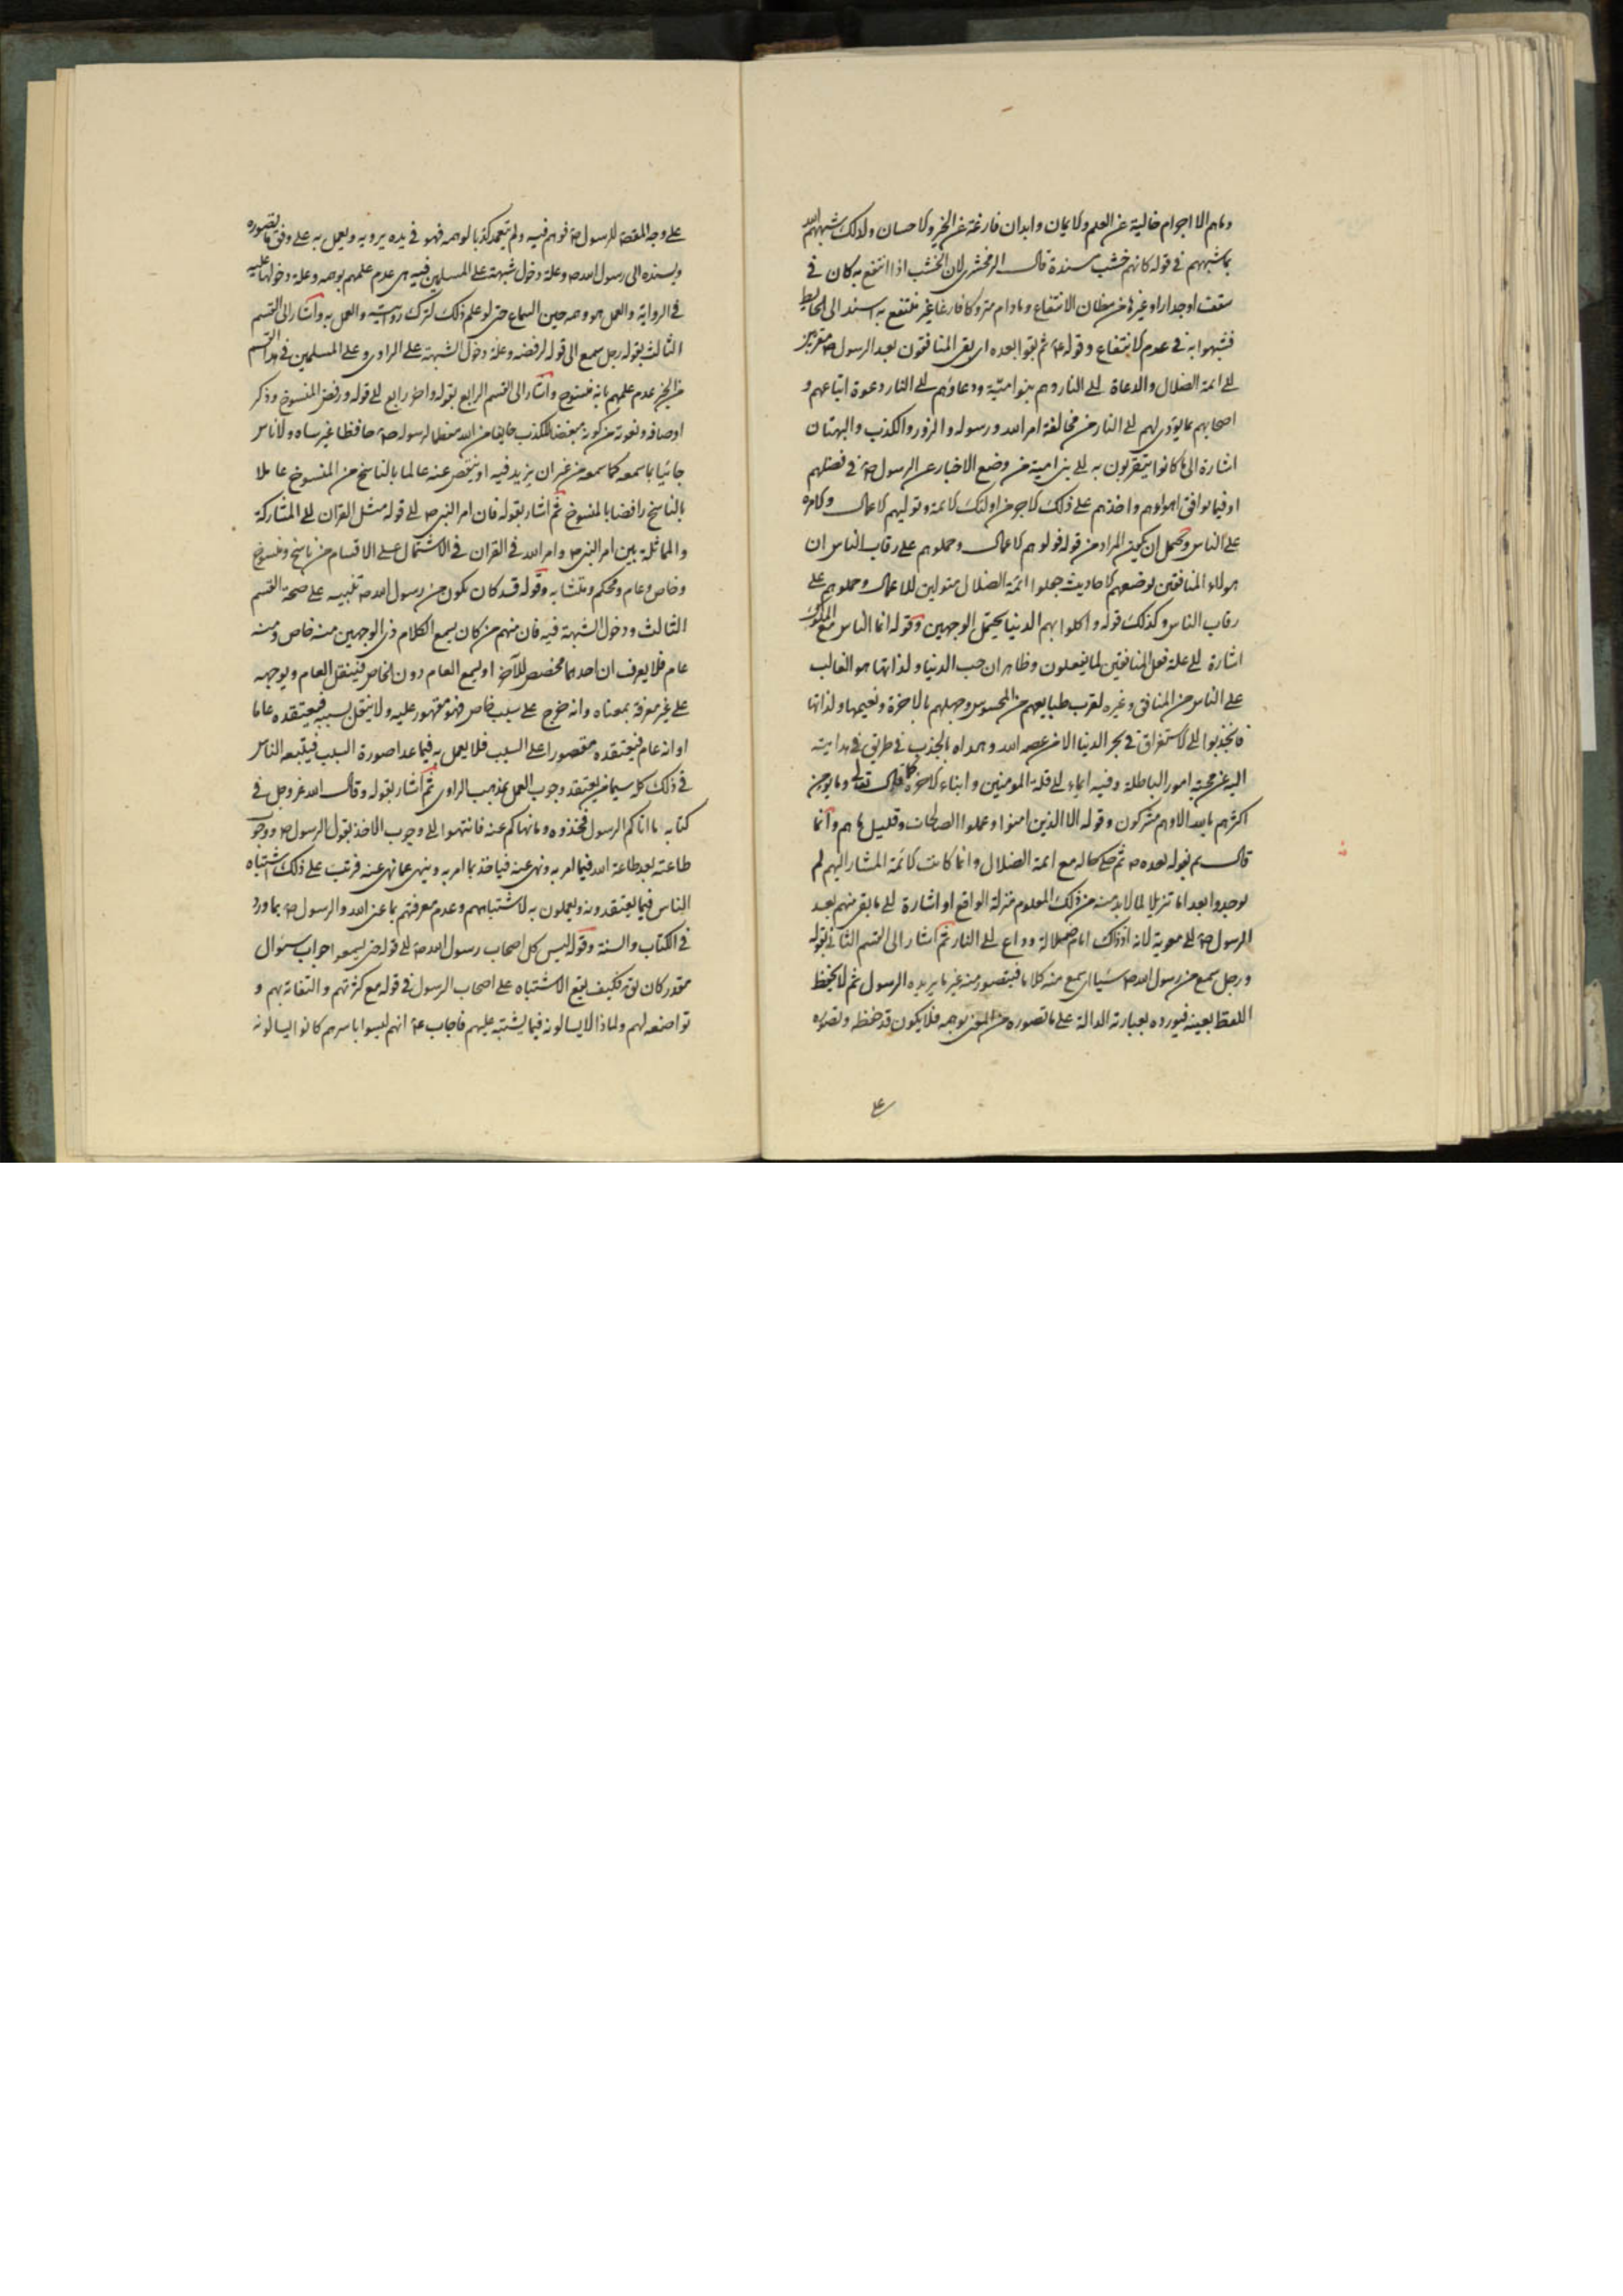 وما هم الا اجرام خالية عن العلم والايمان وابدان فارغة عن الخير والاحسان ولذلك شبههم الله
بما شبههم في قوله كانهم خشب مسندة قال الزمخشري لان الخشب اذا انتفع به كان في
سقف او جدار او غيرها من مظان الانتفاع وما دام متروكا فارغا غير منتفع به اسند الى الحايط
فشبهوا به في عدم الانتفاع وقوله ع ثم بقوا بعده اي بقي المنافقون بعد الرسول ص متقربين
الى ائمة الضلال والدعاة الى النار وهم بنو امية ودعاؤهم الى النار دعوة اتباعهم و
اصحابهم بما يؤدي لهم الى النار من مخالفة امر الله ورسوله والزور والكذب والبهتان
اشارة الى ما كانوا يتقربون به الى بني امية من وضع الاخبار عن الرسول ص في فضلهم
او فيما يوافق اهواءهم واخذهم على ذلك الاجر من اولئك الائمة وتوليهم الاعمال والامره
على الناس ويحتمل ان يكون المراد من قوله فولوهم الاعمال وحملوهم على رقاب الناس ان
هولاء المنافقين لوضعهم الاحاديث جعلوا ائمة الضلال متولين للاعمال وحملوهم على
رقاب الناس وكذلك قوله واكلوا بهم الدنيا يحتمل الوجهين وقوله انما الناس مع الملوك
اشارة الى علة فعل المنافقين لما يفعلون وظاهر ان حب الدنيا ولذاتها هو الغالب
على الناس من المنافق وغيره لقرب طبايعهم من المحسوس وجهلهم بالاخرة ونعيمها ولذاتها
فانجذبوا الى الاستغراق في بحر الدنيا الا من عصمه الله وهداه بالجذب في طريق هدايته
اليه عن محبة امور الباطلة وفيه ايماء الى قلة المومنين وابناء الاخرة كما قال تعالى وما يومن
اكثرهم بالله الا وهم مشركون وقوله الا الذين امنوا وعملوا الصالحات وقليل ما هم وانما
قال ثم بقوا بعده ص ثم حكى حاله مع ائمة الضلال وان كانت الائمة المشار اليهم لم
يوجدوا بعد اما تنزيلا لما لابد منه من ذلك المعلوم منزلة الواقع او اشارة الى ما بقي منهم بعد
الرسول ص الى معوية لانه اذ ذاك امام ضلالة وداع الى النار ثم اشار الى القسم الثاني بقوله
ورجل سمع من رسول الله ص شيئا اي سمع منه كلاما فيتصور منه غير ما يريده الرسول ثم لا يحفظ
اللفظ بعينه فيورده بعبارته الدالة على ما تصوره من المعنى بوهمه فلا يكون قد حفظ وتصوره
على
على وجه المقصد للرسول ص فوهم فيه ولم يتعمد كذبا لوهمه فهو في يده يرويه ويعمل به على وفق ما يتصوره
ويسنده الى رسول الله ص وعلة دخول شبهته على المسلمين فيه هي عدم علمهم بوهمه وعلة دخولها عليه
في الرواية والعمل هو وهمه حين السماع حتى لو علم ذلك لترك روايته والعمل به واشار الى القسم
الثالث بقوله رجل سمع الى قوله لرفضه وعلة دخول الشبهة على الراوي وعلى المسلمين في هذا القسم
من الخبر عدم علمهم بانه منسوخ واشار الى القسم الرابع بقوله واخر رابع الى قوله ورفض المنسوخ وذكر
اوصافه ونعوته من كونه مبغضا للكذب خايفا من الله معظما لرسوله ص حافظا غير ساه ولا ناس
جائيا بما سمعه كما سمعه من غير ان يزيد فيه او ينقص عنه عالما بالناسخ من المنسوخ عاملا
بالناسخ رافضا بالمنسوخ ثم اشار بقوله فان امر النبي ص الى قوله مثل القران الى المشاركة
والمماثلة بين امر النبي ص وامر الله في القران في الاشتمال على الاقسام من ناسخ ومنسوخ
وخاص وعام ومحكم ومتشابه وقوله قد كان يكون من رسول الله ص تنبيه على صحة القسم
الثالث ودخول الشبهة فيه فان منهم من كان يسمع الكلام ذي الوجهين منه خاص ومنه
عام فلا يعرف ان احدهما مخصص للاخر او يسمع العام دون الخاص فينقل العام ويوجهه
على غير معرفة بمعناه وانه خرج على سبب خاص فهو مقصور عليه ولا ينتقل بسببه فيعتقده عاما
او انه عام فيعتقده مقصورا على السبب فلا يعمل به فيما عدا صورة السبب فيتبعه الناس
في ذلك كله سيما من يعتقد وجوب العمل بمذهب الراوي ثم اشار بقوله وقال الله عز وجل في
كتابه ما اتاكم الرسول فخذوه وما نهاكم عنه فانتهوا الى وجوب الاخذ بقول الرسول ص ووجوب
طاعته بعد طاعة الله فيما امر به ونهى عنه فياخذ بما امر به وينهى عما نهى عنه فرتب على ذلك اشتباه
الناس فيما يعتقدونه ويعملون به لاشتباههم وعدم معرفتهم بما عنى الله والرسول ص بما ورد
في الكتاب والسنة وقوله ليس كل اصحاب رسول الله ص الى قوله حتى يسمعوا جواب سؤال
مقدر كان يق فكيف يقع الاشتباه على اصحاب الرسول في قوله مع كثرتهم والتفاته بهم و
تواضعه لهم ولماذا لا يسالونه فيما يشتبه عليهم فاجاب ع انهم ليسوا باسرهم كانوا يسالونه